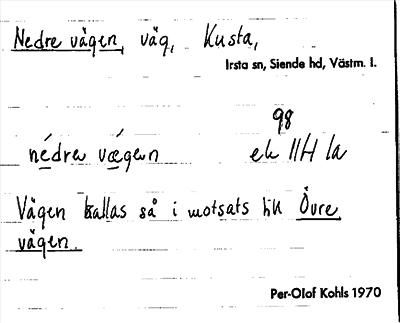 Nedre vägen, väg, Kusta,
Irsta sn, Siende hd, Västm. l.
98
nédrev vǽgen ek 11H la
Vägen kallas så i motsats till Övre
vägen.
Per-Olof Kohls 1970